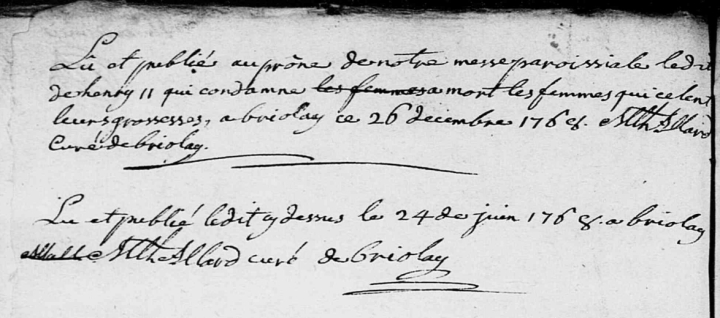 Lû et publié au prône de notre messe paroissiale ledit
de henry II qui condamne les femmes a mort les femmes qui celent
leurs grossesses, a briolay ce 26 decembre 1768. Mth Allard
Curé de briolay.
Lu et publié ledit cy dessus le 24 de juin 1768. a briolay
Mth Allard curé de briolay